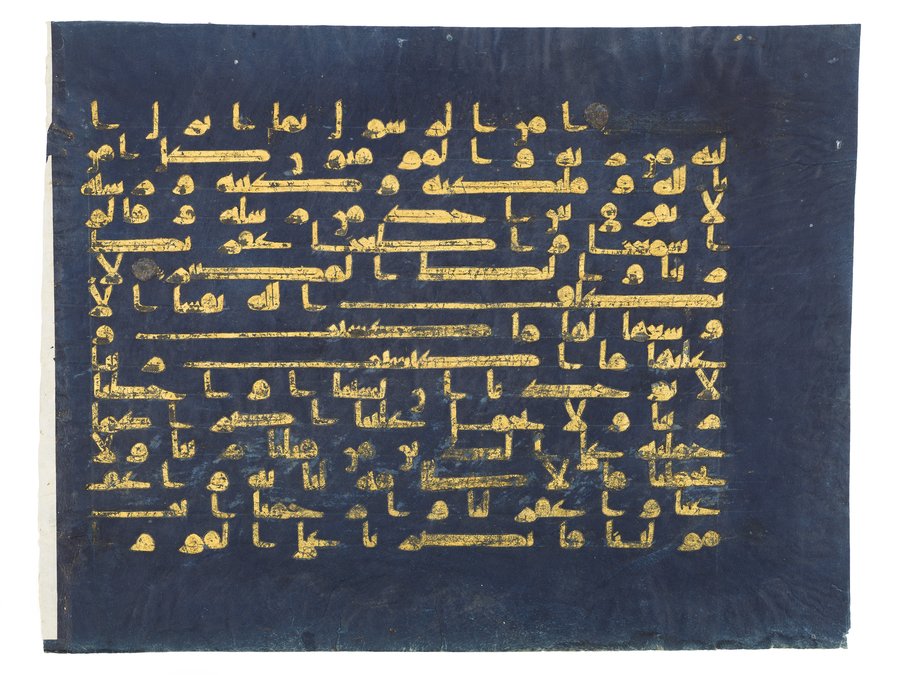 امن الرسول بما انزل ا
ليه من ربه والمومنون كل امن
بالله وملئكته وكتبه ورسله
لا نفرق بين احد من رسله وقالو
ا سمعنا واطعنا غفرنك
ربنا واليك المصير لا
يكلف الله نفسا الا
وسعها لها ما كسبت و
عليها ما اكتسبت ربنا
لا تواخذنا ان نسينا او اخطانا
ربنا ولا تحمل علينا اصرا كما
حملته على الذين من قبلنا ربنا ولا
تحملنا ما لا طاقه لنا به واعف
عنا واغفر لنا وارحمنا انت
مولينا فانصرنا على القوم